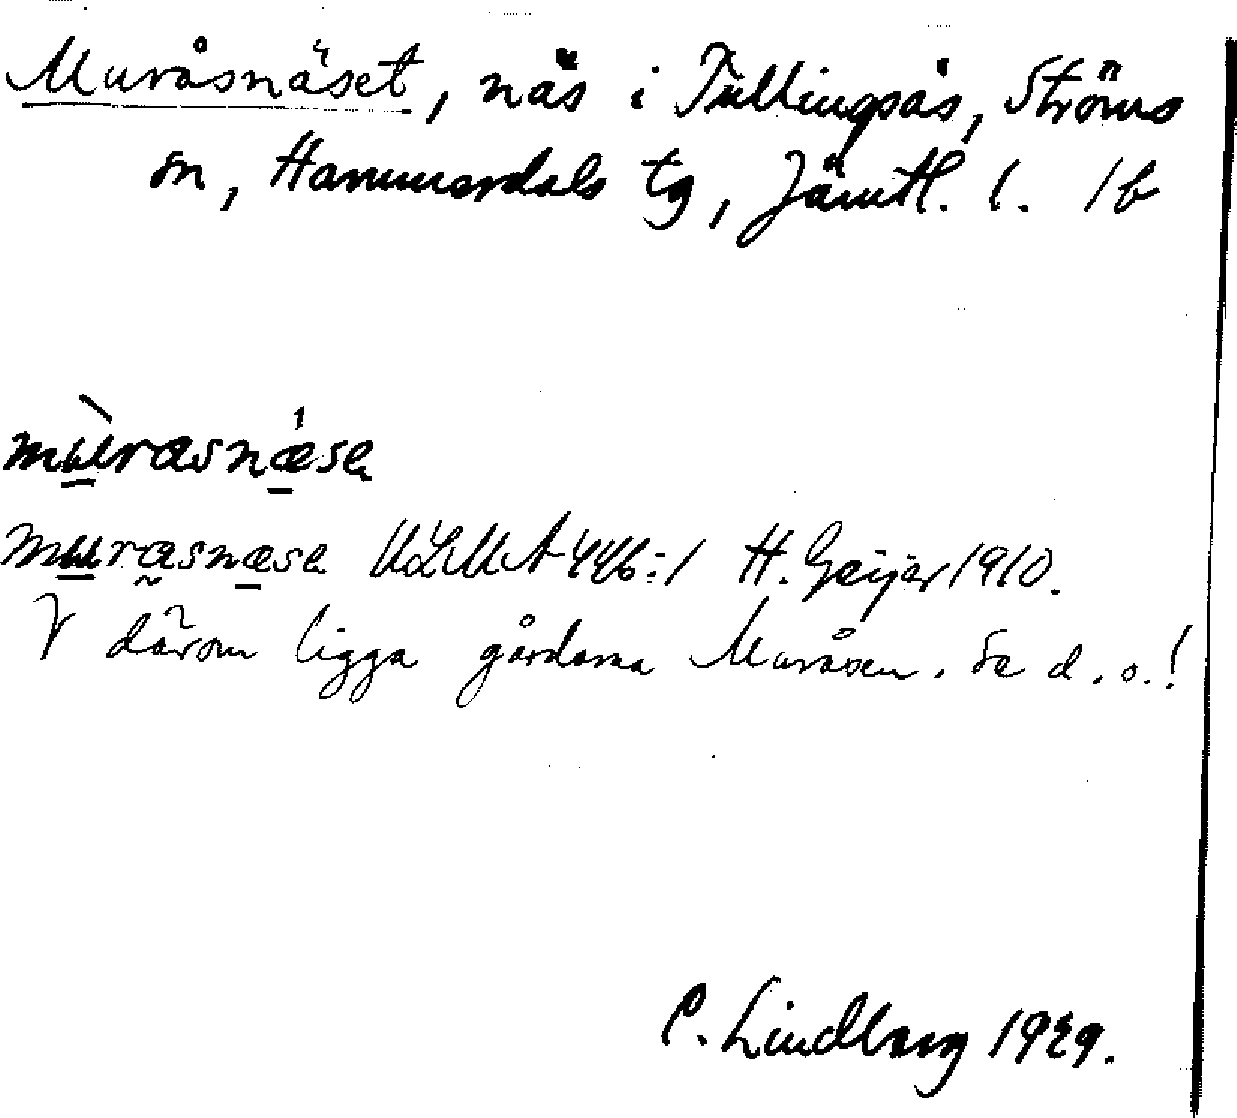 Muråsnäset, näs i Tullingsås, Ströms
sn, Hammerdals tg, Jämtl. l. 1b
mùrasnǽsa
murasnæsa ULMA 446:1 H. Geijer 1910.
V därom ligga gårdarna Muråsen. Se d. o.!
C. Lindberg 1929.